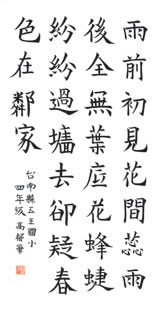 雨前初見花間蕊雨
後全無葉底花蜂蝶
紛紛過墻去卻疑春
色在鄰家
台南縣五王國小
四年級高郁筆